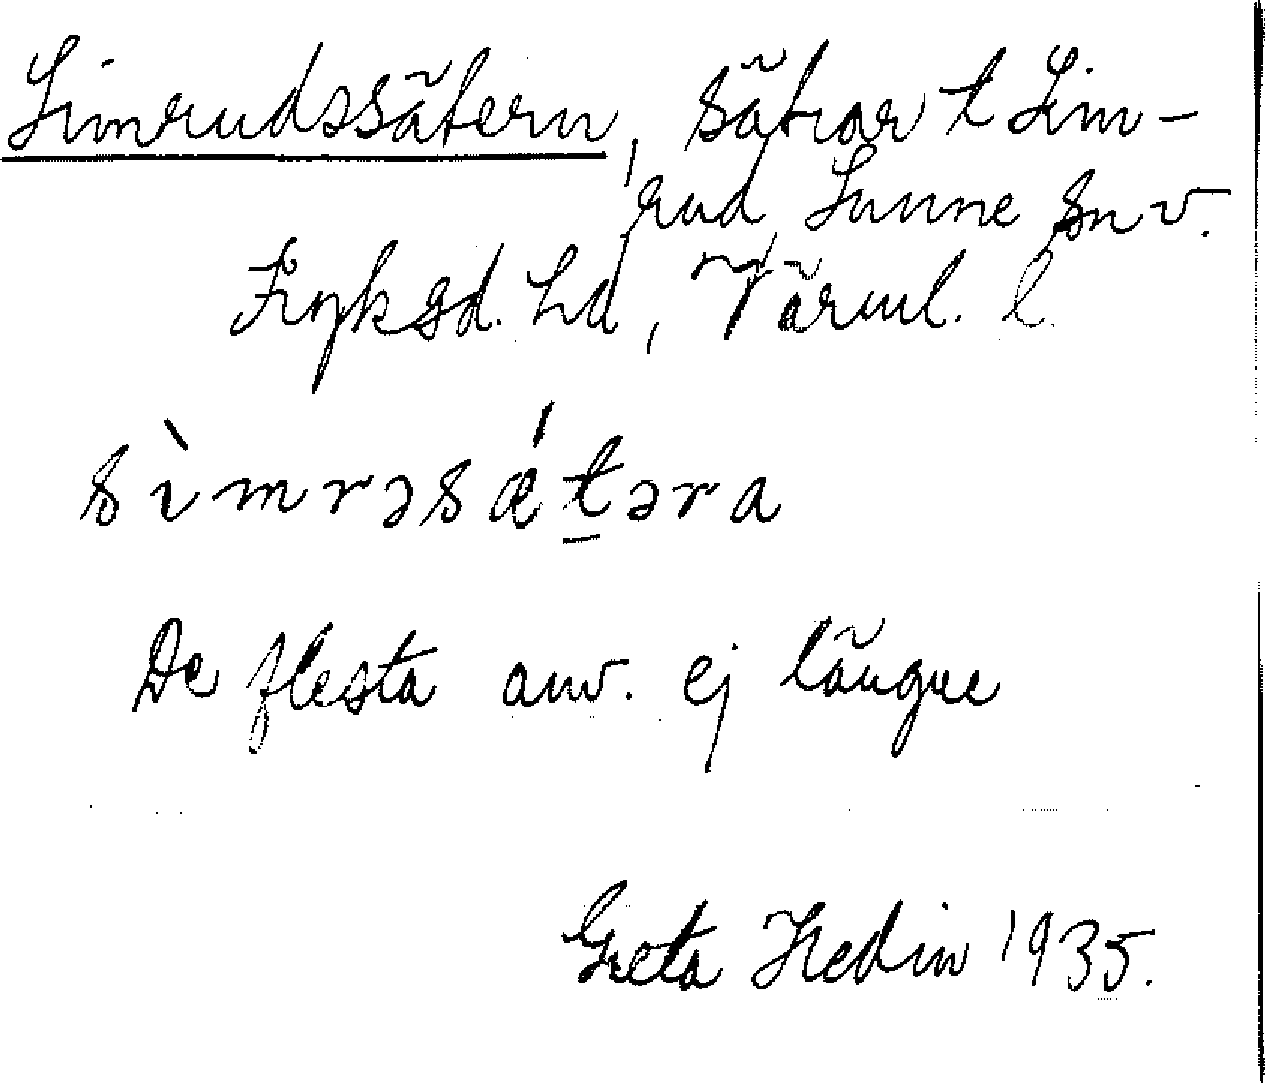 Simrudssätern, sätrar t Sim-
rud, Sunne sn v.
Fryksd. hd, Värml. l.
sìmrəsǽt̠əra
De flesta anv. ej längre
Greta Hedin 1935.